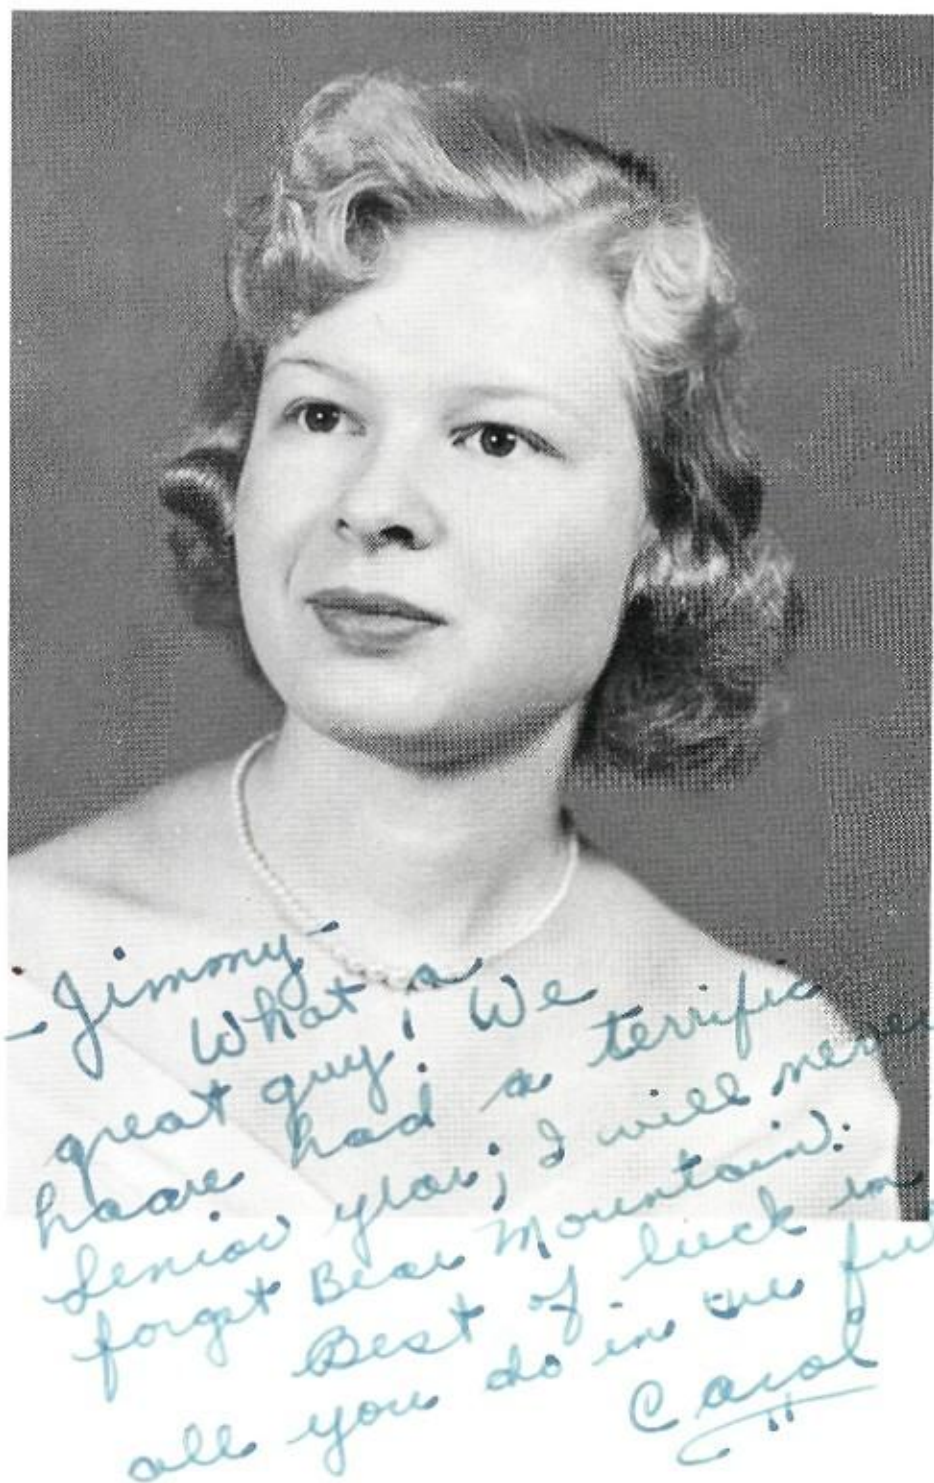 -Jimmy-
What a
great guy! We
have had a terrific
Senior year; I will never
forget Bear Mountain.
Best of luck in
all you do in the fu
Carol